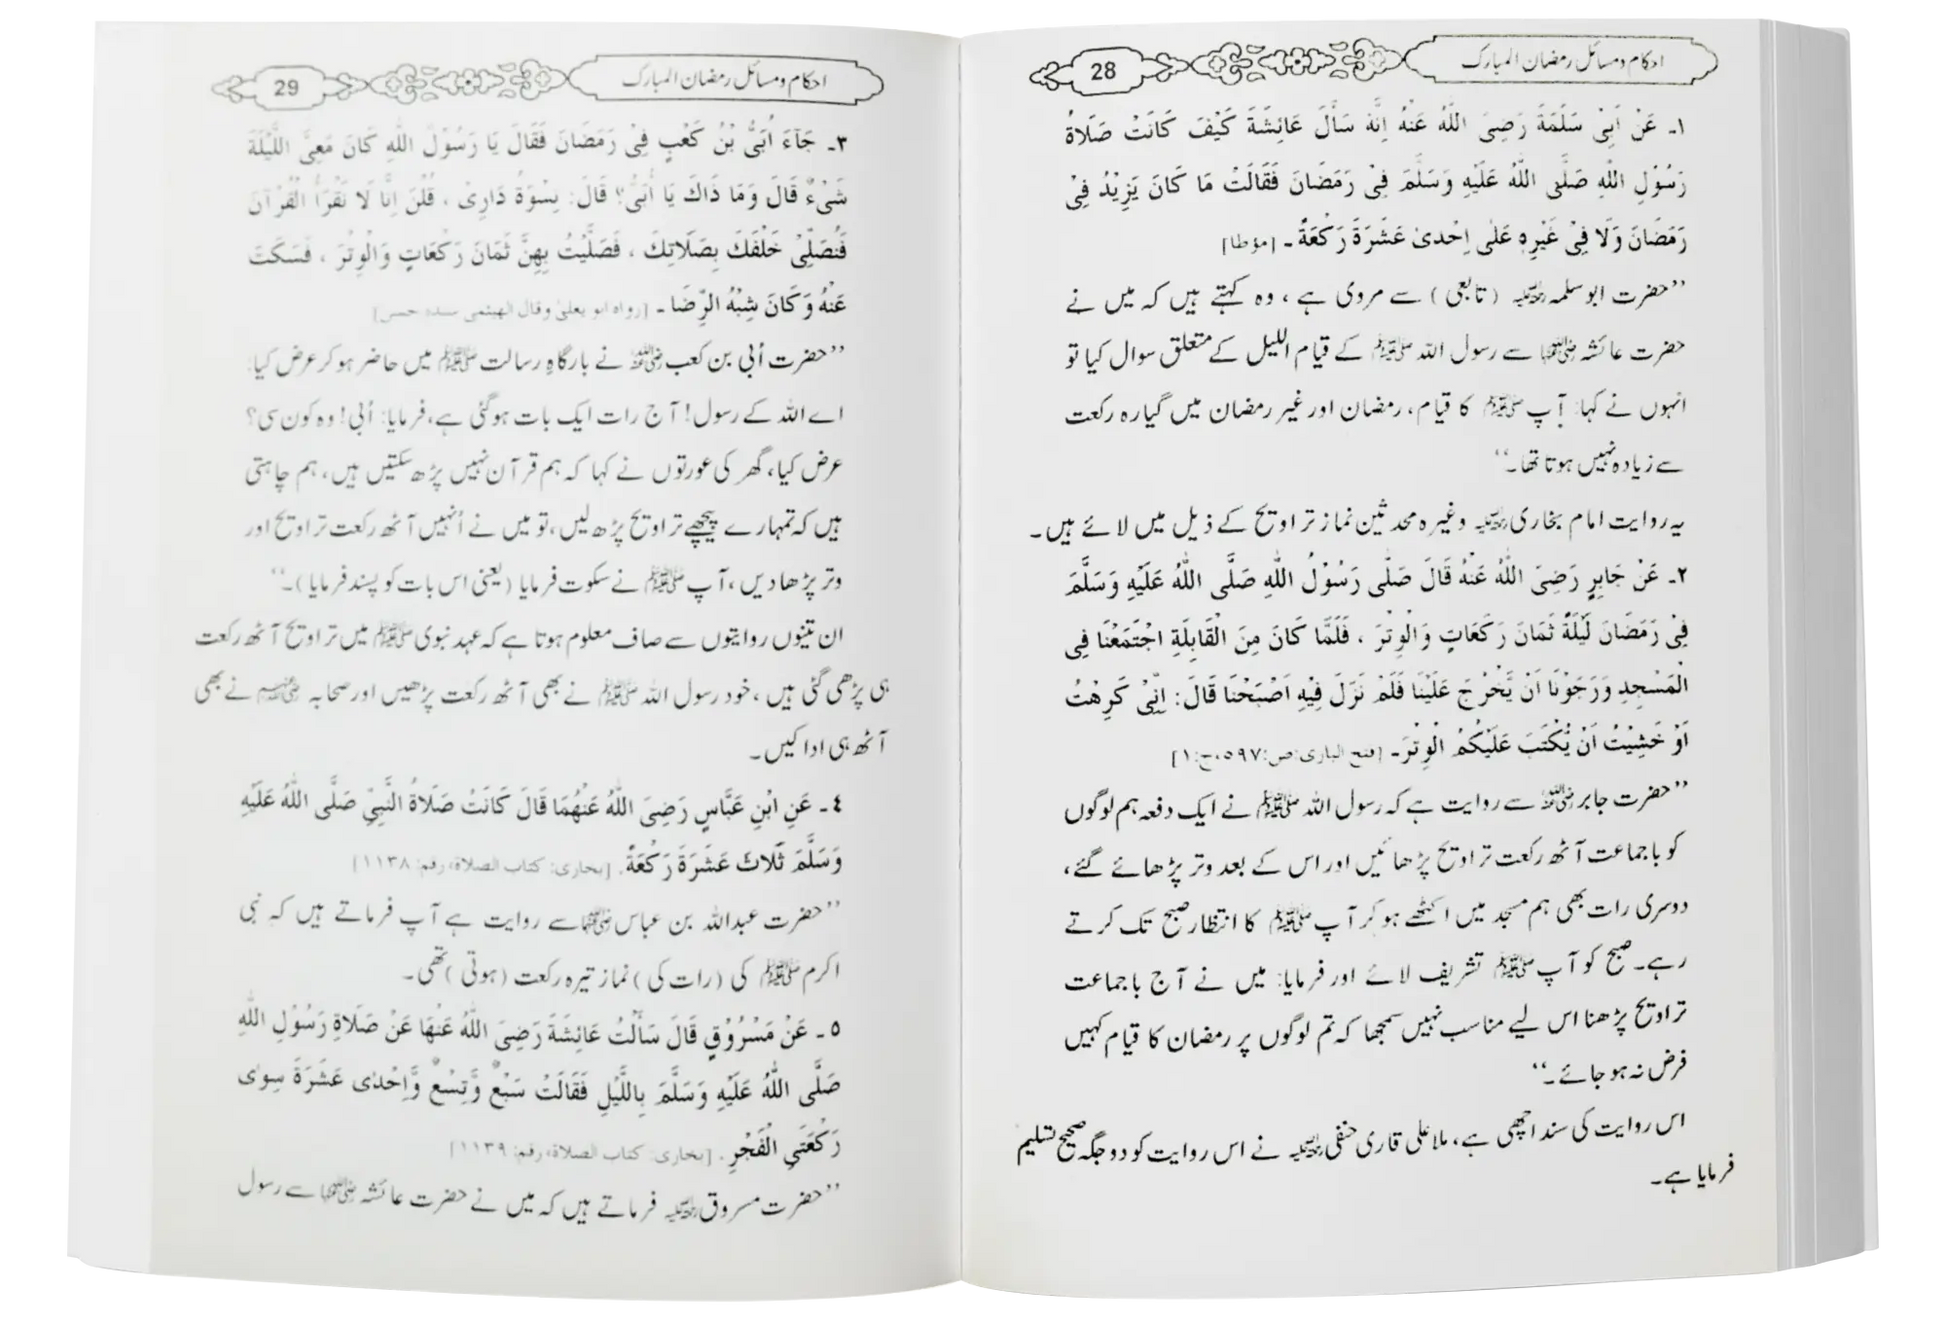 احکام و مسائل رمضان المبارک
28
١۔ عَنْ اَبِىْ سَلَمَةَ رَضِىَ اللّٰهُ عَنْهُ اِنَّهُ سَأَلَ عَائِشَةَ كَيْفَ كَانَتْ صَلَاةُ
رَسُوْلِ اللّٰهِ صَلَّى اللّٰهُ عَلَيْهِ وَسَلَّمَ فِىْ رَمَضَانَ فَقَالَتْ مَا كَانَ يَزِيْدُ فِىْ
رَمَضَانَ وَلَا فِىْ غَيْرِهٖ عَلٰى اِحْدىٰ عَشَرَةَ رَكْعَةً۔ [مؤطا]
’’حضرت ابوسلمہ رحمہ اللہ (تابعی) سے مروی ہے، وہ کہتے ہیں کہ میں نے
حضرت عائشہ رضی اللہ عنہا سے رسول اللہ ﷺ کے قیام اللیل کے متعلق سوال کیا تو
انہوں نے کہا: آپ ﷺ کا قیام، رمضان اور غیر رمضان میں گیارہ رکعت
سے زیادہ نہیں ہوتا تھا۔‘‘
یہ روایت امام بخاری رحمہ اللہ وغیرہ محدثین نماز تراویح کے ذیل میں لائے ہیں۔
٢۔ عَنْ جَابِرٍ رَضِىَ اللّٰهُ عَنْهُ قَالَ صَلّٰى رَسُوْلُ اللّٰهِ صَلَّى اللّٰهُ عَلَيْهِ وَسَلَّمَ
فِىْ رَمَضَانَ لَيْلَةً ثَمَانَ رَكَعَاتٍ وَالْوِتْرَ ، فَلَمَّا كَانَ مِنَ الْقَابِلَةِ اجْتَمَعْنَا فِى
الْمَسْجِدِ وَرَجَوْنَا اَنْ يَّخْرُجَ عَلَيْنَا فَلَمْ نَزَلَ فِيْهِ اَصْبَحْنَا قَالَ: اِنِّىْ كَرِهْتُ
اَوْ خَشِيْتُ اَنْ يُّكْتَبَ عَلَيْكُمُ الْوِتْرَ۔ [فتح البارى:ص:٥٩٧،ج:١]
’’حضرت جابر رضی اللہ عنہ سے روایت ہے کہ رسول اللہ ﷺ نے ایک دفعہ ہم لوگوں
کو باجماعت آٹھ رکعت تراویح پڑھائیں اور اس کے بعد وتر پڑھائے گئے،
دوسری رات بھی ہم مسجد میں اکٹھے ہو کر آپ ﷺ کا انتظار صبح تک کرتے
رہے۔ صبح کو آپ ﷺ تشریف لائے اور فرمایا: میں نے آج باجماعت
تراویح پڑھنا اس لیے مناسب نہیں سمجھا کہ تم لوگوں پر رمضان کا قیام کہیں
فرض نہ ہو جائے۔‘‘
اس روایت کی سند اچھی ہے، ملا علی قاری حنفی رحمہ اللہ نے اس روایت کو دو جگہ صحیح تسلیم
فرمایا ہے۔
احکام و مسائل رمضان المبارک
29
٣۔ جَآءَ اُبَىُّ بْنُ كَعْبٍ فِىْ رَمَضَانَ فَقَالَ يَا رَسُوْلَ اللّٰهِ كَانَ مَعِىَ اللَّيْلَةَ
شَىْءٌ قَالَ وَمَا ذَاكَ يَا اُبَىُّ؟ قَالَ: نِسْوَةُ دَارِىْ ، قُلْنَ اِنَّا لَا نَقْرَأُ الْقُرْآنَ
فَنُصَلِّىْ خَلْفَكَ بِصَلَاتِكَ ، فَصَلَّيْتُ بِهِنَّ ثَمَانَ رَكْعَاتٍ وَالْوِتْرَ ، فَسَكَتَ
عَنْهُ وَكَانَ شِبْهُ الرِّضَا۔ [رواه ابو يعلىٰ وقال الهيثمى سنده حسن]
’’حضرت اُبی بن کعب رضی اللہ عنہ نے بارگاہِ رسالت ﷺ میں حاضر ہو کر عرض کیا:
اے اللہ کے رسول! آج رات ایک بات ہو گئی ہے، فرمایا: اُبی! وہ کون سی؟
عرض کیا، گھر کی عورتوں نے کہا کہ ہم قرآن نہیں پڑھ سکتیں ہیں، ہم چاہتی
ہیں کہ تمہارے پیچھے تراویح پڑھ لیں، تو میں نے اُنہیں آٹھ رکعت تراویح اور
وتر پڑھا دیں، آپ ﷺ نے سکوت فرمایا (یعنی اس بات کو پسند فرمایا)۔‘‘
ان تینوں روایتوں سے صاف معلوم ہوتا ہے کہ عہد نبوی ﷺ میں تراویح آٹھ رکعت
ہی پڑھی گئی ہیں، خود رسول اللہ ﷺ نے بھی آٹھ رکعت پڑھیں اور صحابہ رضی اللہ عنہم نے بھی
آٹھ ہی ادا کیں۔
٤۔ عَنِ ابْنِ عَبَّاسٍ رَضِىَ اللّٰهُ عَنْهُمَا قَالَ كَانَتْ صَلَاةُ النَّبِىِّ صَلَّى اللّٰهُ عَلَيْهِ
وَسَلَّمَ ثَلَاثَ عَشَرَةَ رَكْعَةً. [بخارى: كتاب الصلاة، رقم: ١١٣٨]
’’حضرت عبداللہ بن عباس رضی اللہ عنہما سے روایت ہے آپ فرماتے ہیں کہ نبی
اکرم ﷺ کی (رات کی) نماز تیرہ رکعت (ہوتی) تھی۔
٥۔ عَنْ مَسْرُوْقٍ قَالَ سَأَلْتُ عَائِشَةَ رَضِىَ اللّٰهُ عَنْهَا عَنْ صَلَاةِ رَسُوْلِ اللّٰهِ
صَلَّى اللّٰهُ عَلَيْهِ وَسَلَّمَ بِاللَّيْلِ فَقَالَتْ سَبْعٌ وَّتِسْعٌ وَّاِحْدٰى عَشَرَةَ سِوٰى
رَكْعَتَىِ الْفَجْرِ. [بخارى: كتاب الصلاة، رقم: ١١٣٩]
’’حضرت مسروق رحمہ اللہ فرماتے ہیں کہ میں نے حضرت عائشہ رضی اللہ عنہا سے رسول